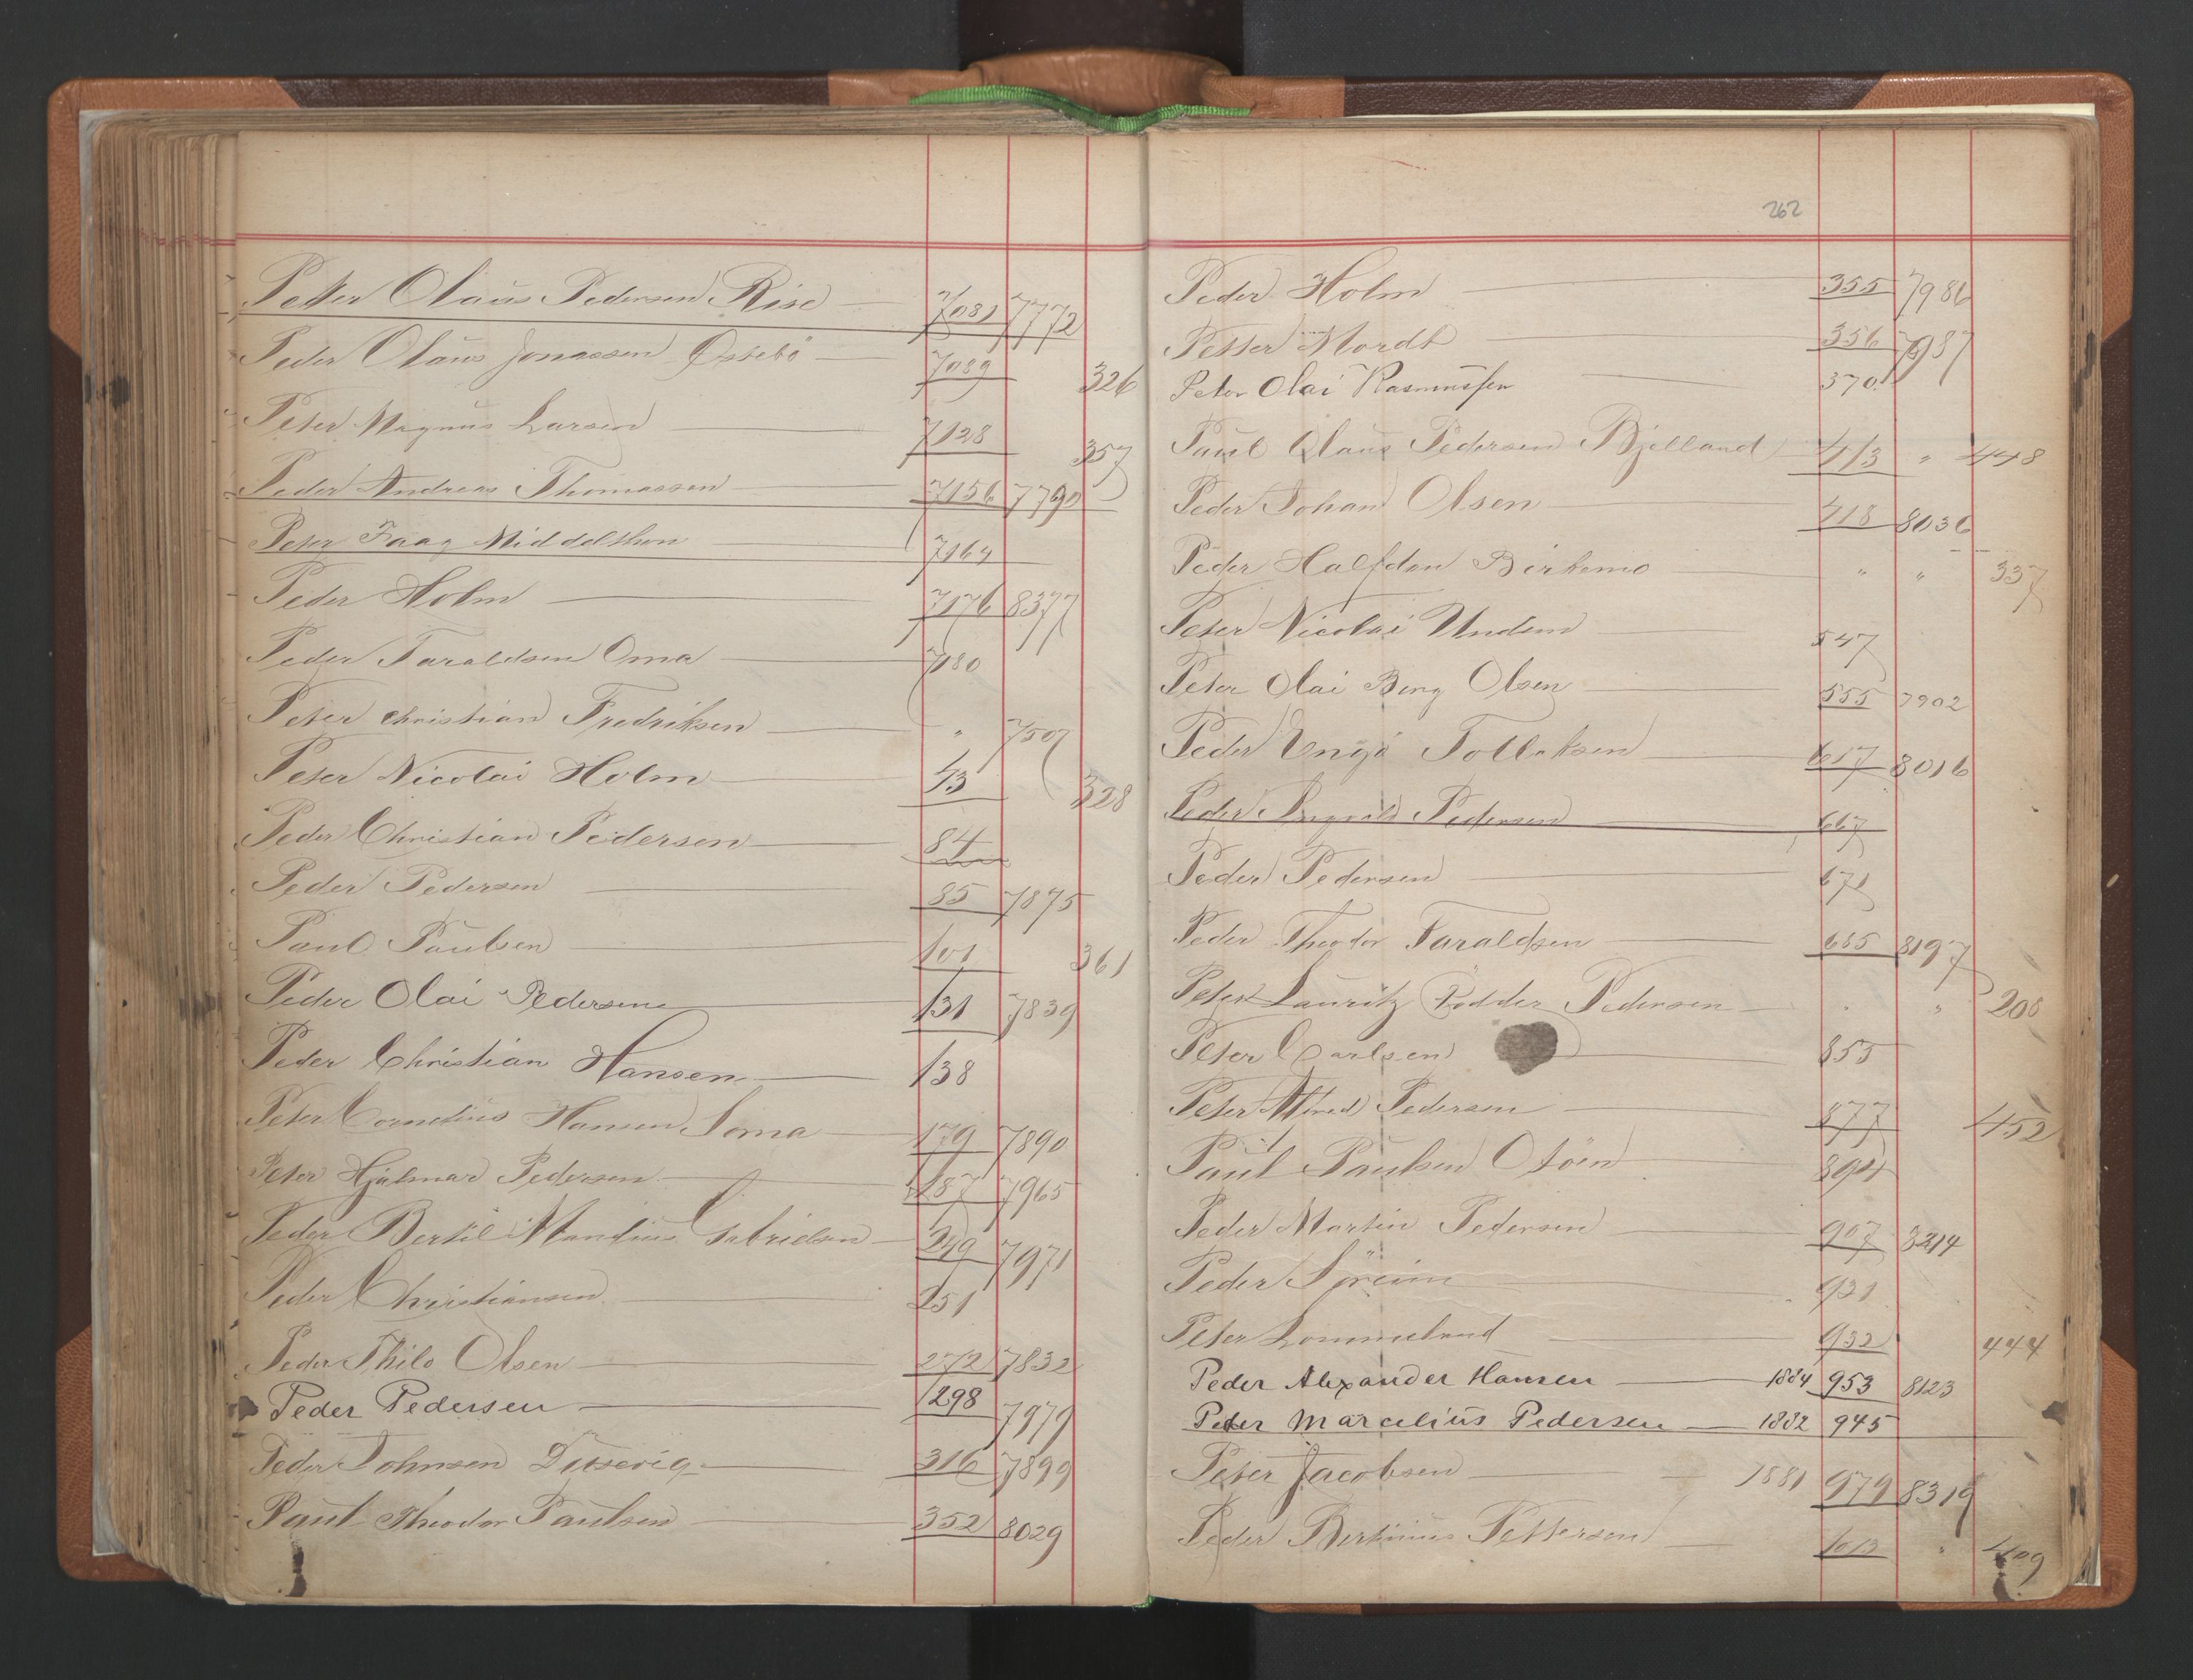 Petter Olaus Pedersen Rise 7081 7772
Peder Olaus Jonassen Østebö 7089 326
Peter Magnus Larsen 7128 357
Peder Andreas Thomassen 7156 7790
Peter Faag Middelthon 7164
Peder Holm 7176 8377
Peder Taraldsen Oma 7180
Peter Christian Fredriksen " 7507
Peter Nicolai Holm 43 328
Peder Christian Pedersen 84
Peder Pedersen 85 7875
Paul Paulsen 101 361
Peder Olai Pedersen 131 7839
Peder Christian Hansen 138
Peter Cornelius Hansen Soma 179 7890
Peter Hjalmar Pedersen 187 7965
Peder Bertil Mandius Gabrielsen 249 7971
Peder Christiansen 251
Peder Thilo Olsen 272 7832
Peder Pedersen 298 7979
Peder Johnsen 316 7899
Paul Theodor Paulsen 352 8029
262
Peder Holm 355 7986
Petter Mordt 356 7987
Peter Olai Rasmussen 370
Paul Olaus Pedersen Bjelland 413 " 448
Peder Johan Olsen 418 8036
Peder Halfdan Birkemo " " 337
Peter Nicolai Undem 547
Peter Olai Berg Olsen 555 7902
Peder Tollaksen 617 8016
Peder Ingvald Pedersen 667
Peder Pedersen 671
Peder Theodor Taraldsen 685 8197
Peter Lauritz Rödder Pedersen " " 208
Peter Carlsen 855
Peter Alfred Pedersen 877 452
Paul Paulsen Otöen 894
Peder Martin Pedersen 907 8214
Peder Söreim 931
Peter Lommeland 932 444
Peder Alexander Hansen 1884 953 8123
Peder Marcelius Pedersen 1882 945
Peter Jacobsen 1881 979 8319
Peder Bertinius Pettersen 1012 " 409